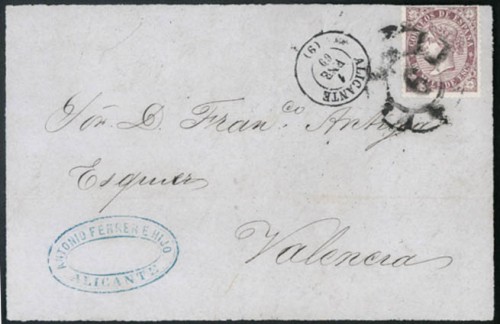 CORREOS DE ESPAÑA
ALICANTE
69
(9)
Sór. D. Franco Antiga
Esquer
Valencia
ANTONIO FERRER E HIJO
ALICANTE